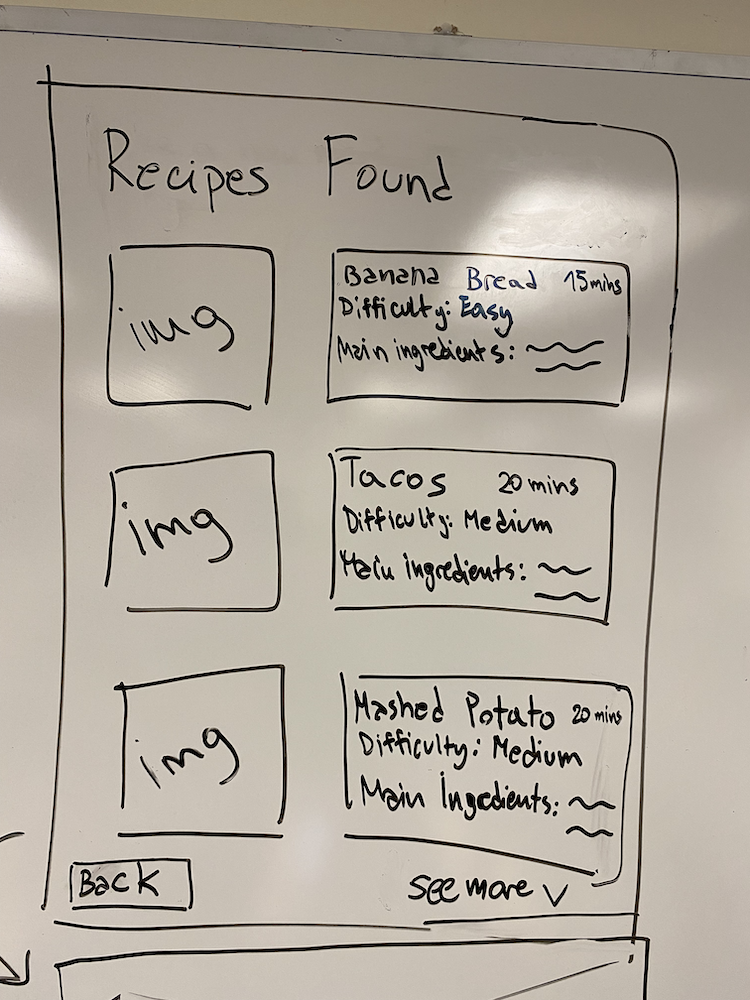 Recipes Found
img
Banana Bread 15mins
Difficulty: Easy
Main ingredients:
img
Tacos 20 mins
Difficulty: Medium
Main ingredients:
img
Mashed Potato 20 mins
Difficulty: Medium
Main Ingredients:
Back
see more